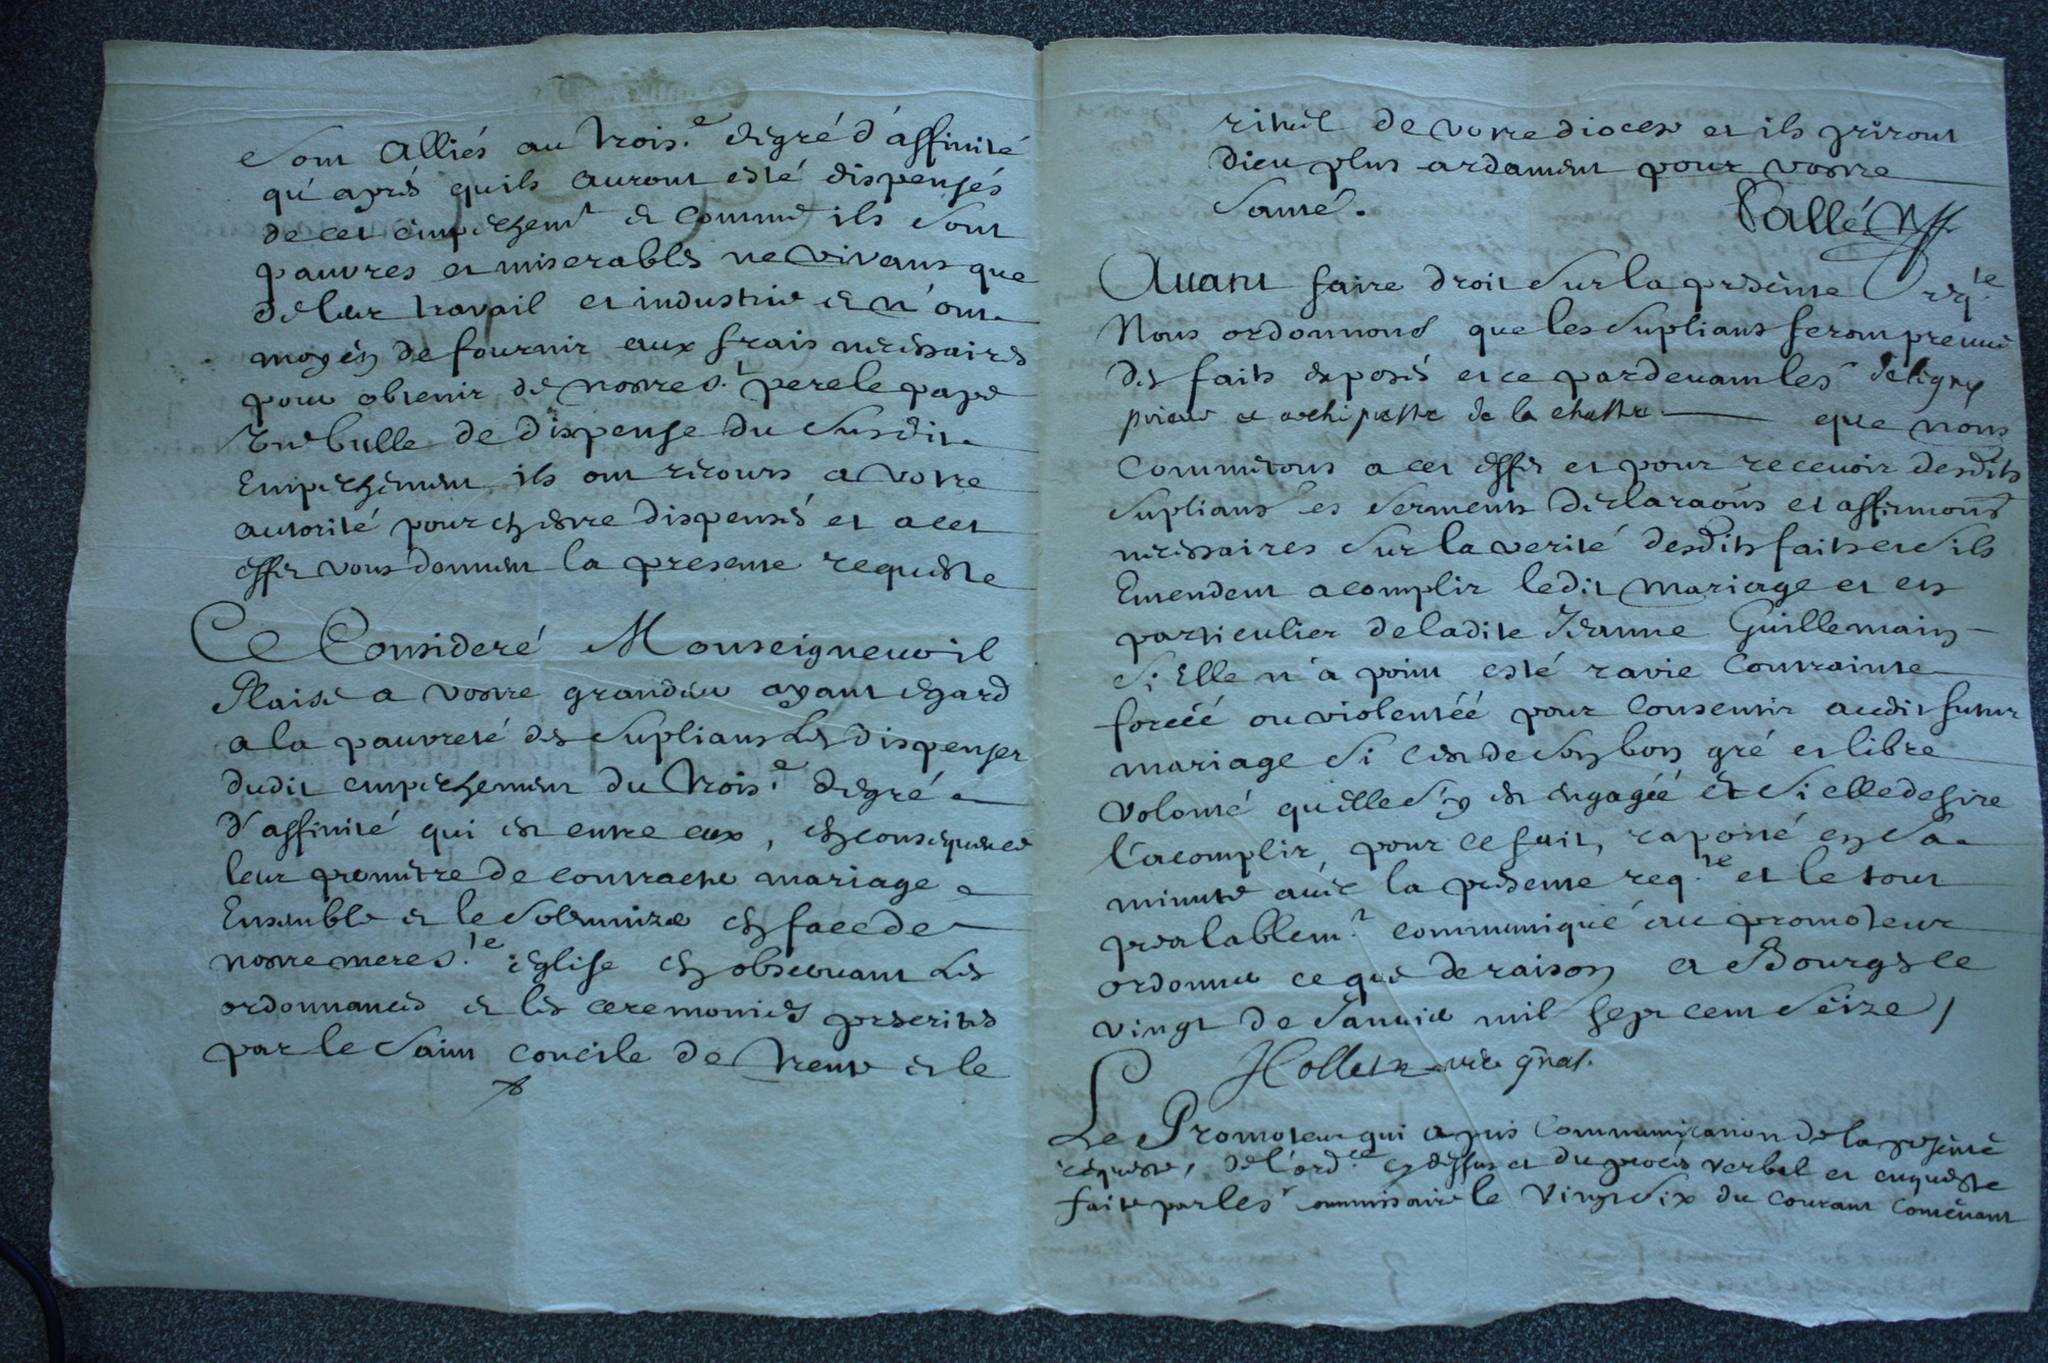 sont alliés au trois.e degré d'affinité
qu'aprés quils auront esté dispensés
de cet empeschemt et comme ils sont
pauvres et miserables ne vivans que
de leur travail et industrie et n'ont
moyen de fournir aux frais necessaires
pour obtenir de nostre s.t pere le pape
une bulle de dispense du susdit
Empeschement ils ont recours a votre
autorité pour en estre dispensés et a cet
effet vous donnent la presente requeste
Ce Consideré Monseigneur il
Plaise a vostre grandeur ayant egard
a la pauvreté des supliants les dispenser
dudit empeschement du trois.e degré
d'affinité qui est entre eux, en consequence
leur permettre de contracter mariage
Ensemble et le solemnizer en face de
nostre mere s.te eglise en observant les
ordonnances et les ceremonies prescrites
par le saint concile de trente et le
rituel de votre diocese et ils priront
dieu plus ardament pour vostre
santé.
Pallé
Avant faire droit sur la presente req.te
Nous ordonnons que les supliants feront preuve
des faits exposés et ce pardevant le sr deligny
prieur et archiprestre de la chastre que nous
commetons a cet effet et pour recevoir desdits
supliants les serments declaraōns et affirmōns
necessaires sur la verité desdits faits et sils
Entendent acomplir ledit mariage et en
particulier de ladite Jeanne Guillemain
si Elle n'a point esté ravie contrainte
forcéé ou violentéé pour consentir audit futur
mariage si c'est de son bon gré et libre
volonté quelle s'y est engagéé et si elle desire
l'acomplir, pour ce fait, raporté en sa
minute avec la presente req.te et le tout
prealablem.t communiqué au promoteur
ordonner ce que de raison a Bourges le
vingt de Janvier mil sept cent seize
vic gnal.
Le Promoteur qui a pris Communication de la presente
requeste, de l'ord.ce cy dessus et du procés verbal et enqueste
faite par le sr commissaire le vingt six du courant contenant